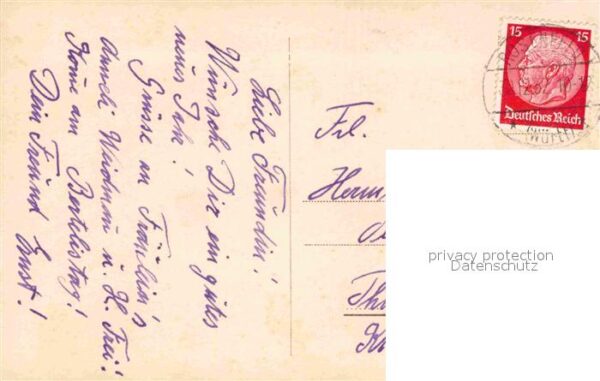 Liebe Freundin!
Wünsch Dir ein gutes
neues Jahr!
Grüsse an Fräulein's
Anneli Weidmann u. H. Frei!
Kome am Bertelistag!
Dein Freund Ernst!
Frl.
Herm
Th
15 15
Deutsches Reich
Württ
privacy protection
Datenschutz